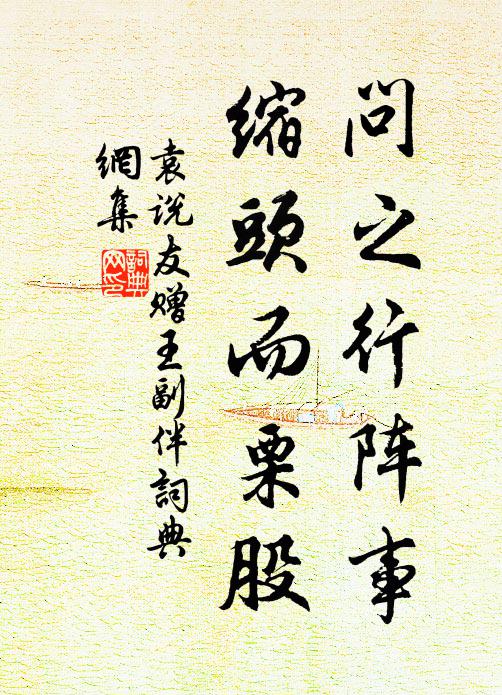 问之行阵事
缩頭而栗股
袁说友赠王副伴詞典
網集
詞典网印